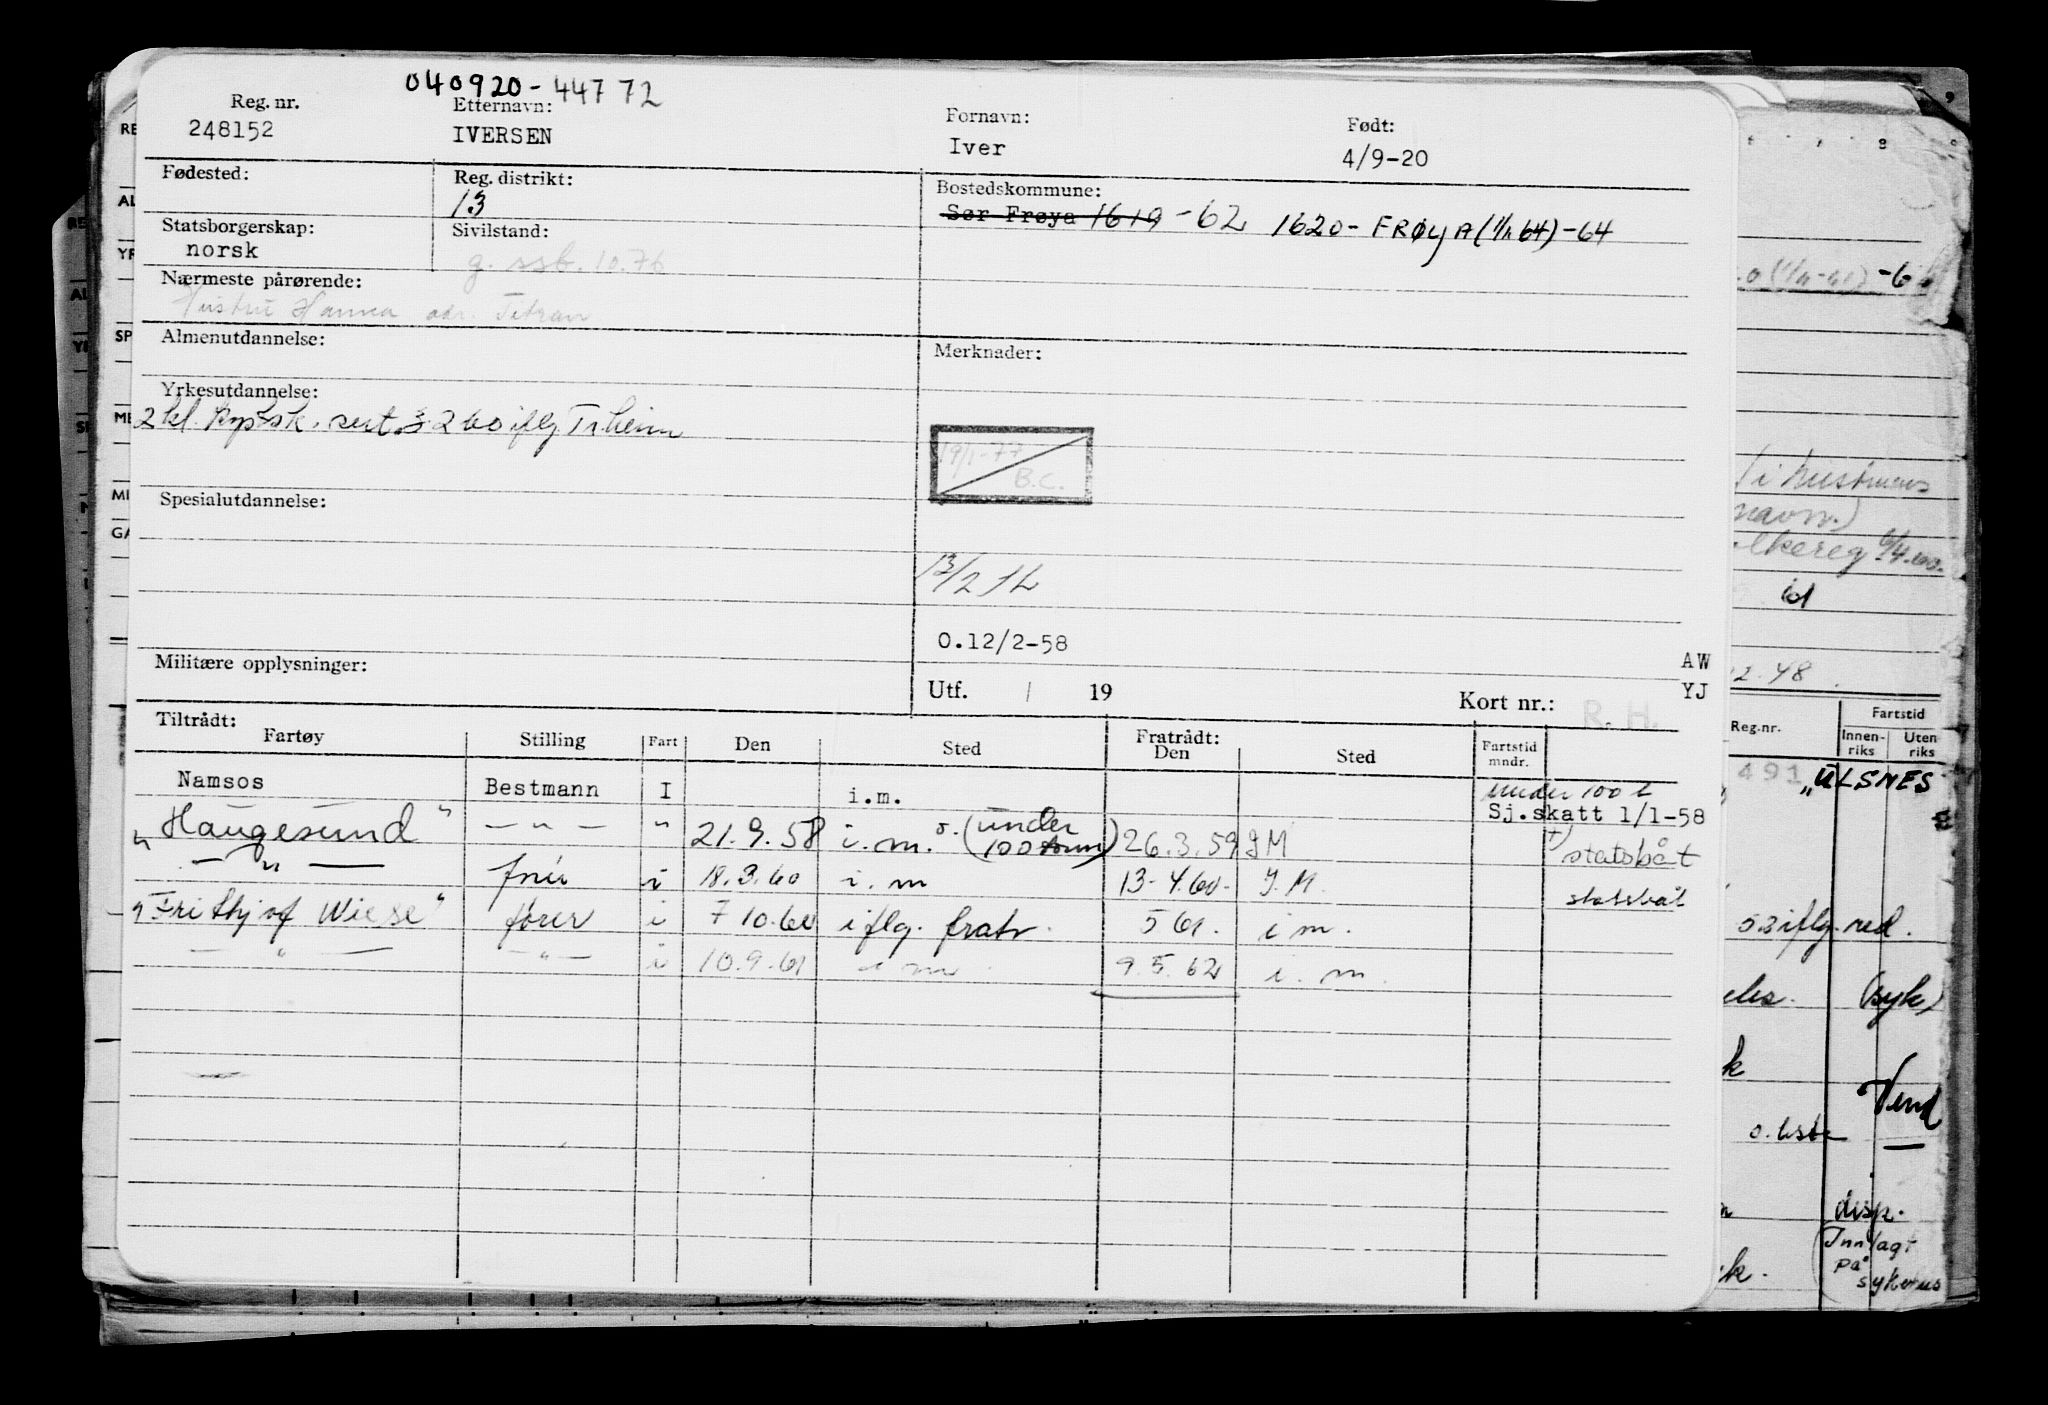 040920-44772
Reg. nr. Etternavn: Fornavn: Født:
248152 IVERSEN Iver 4/9-20
Fødested: Reg. distrikt: Bostedskommune:
13 Sør Frøya 1619 -62 1620- FRØYA (1/1 64) -64
Statsborgerskap: Sivilstand:
norsk g. ssb. 10.76
Nærmeste pårørende:
Hustru Hanna adr. Titran
Almenutdannelse: Merknader:
Yrkesutdannelse:
2 kl. sk. sert. 3.2 60 iflg Tr.heim
19/1-77
B.C.
Spesialutdannelse:
13/2
0.12/2-58
Militære opplysninger: AW
Utf. / 19 Kort nr.: YJ
R. H.
Tiltrådt: Fratrådt:
Fartøy Stilling Fart Den Sted Den Sted Fartstid mndr.
Namsos Bestmann I i.m. under 100 t
Sj.skatt 1/1-58
"Haugesund" — " — " 21.9.58 i.m. (under 100 tonn) 26.3.59 I M +) statsbåt
— " — fører i 18.3.60 i.m 13-4.60- I.M. statsbåt
"Frithjof Wiese" fører i 7 10.60 iflg. fratr. 5 61. i m.
— " — — " — i 10.9.61 i m 9.5.62 i. m.
RE
AL
YR
SP
ME
MI
GA
-6
/i hustruens
navn.)
6/4.60.
id
12.48.
Reg.nr. Fartstid
Innen-riks Uten riks
491 "ULSNES
53 iflg. red.
(syk)
k
Vend
o. liste
disp.
(Innlagt
på
sykehus
k.